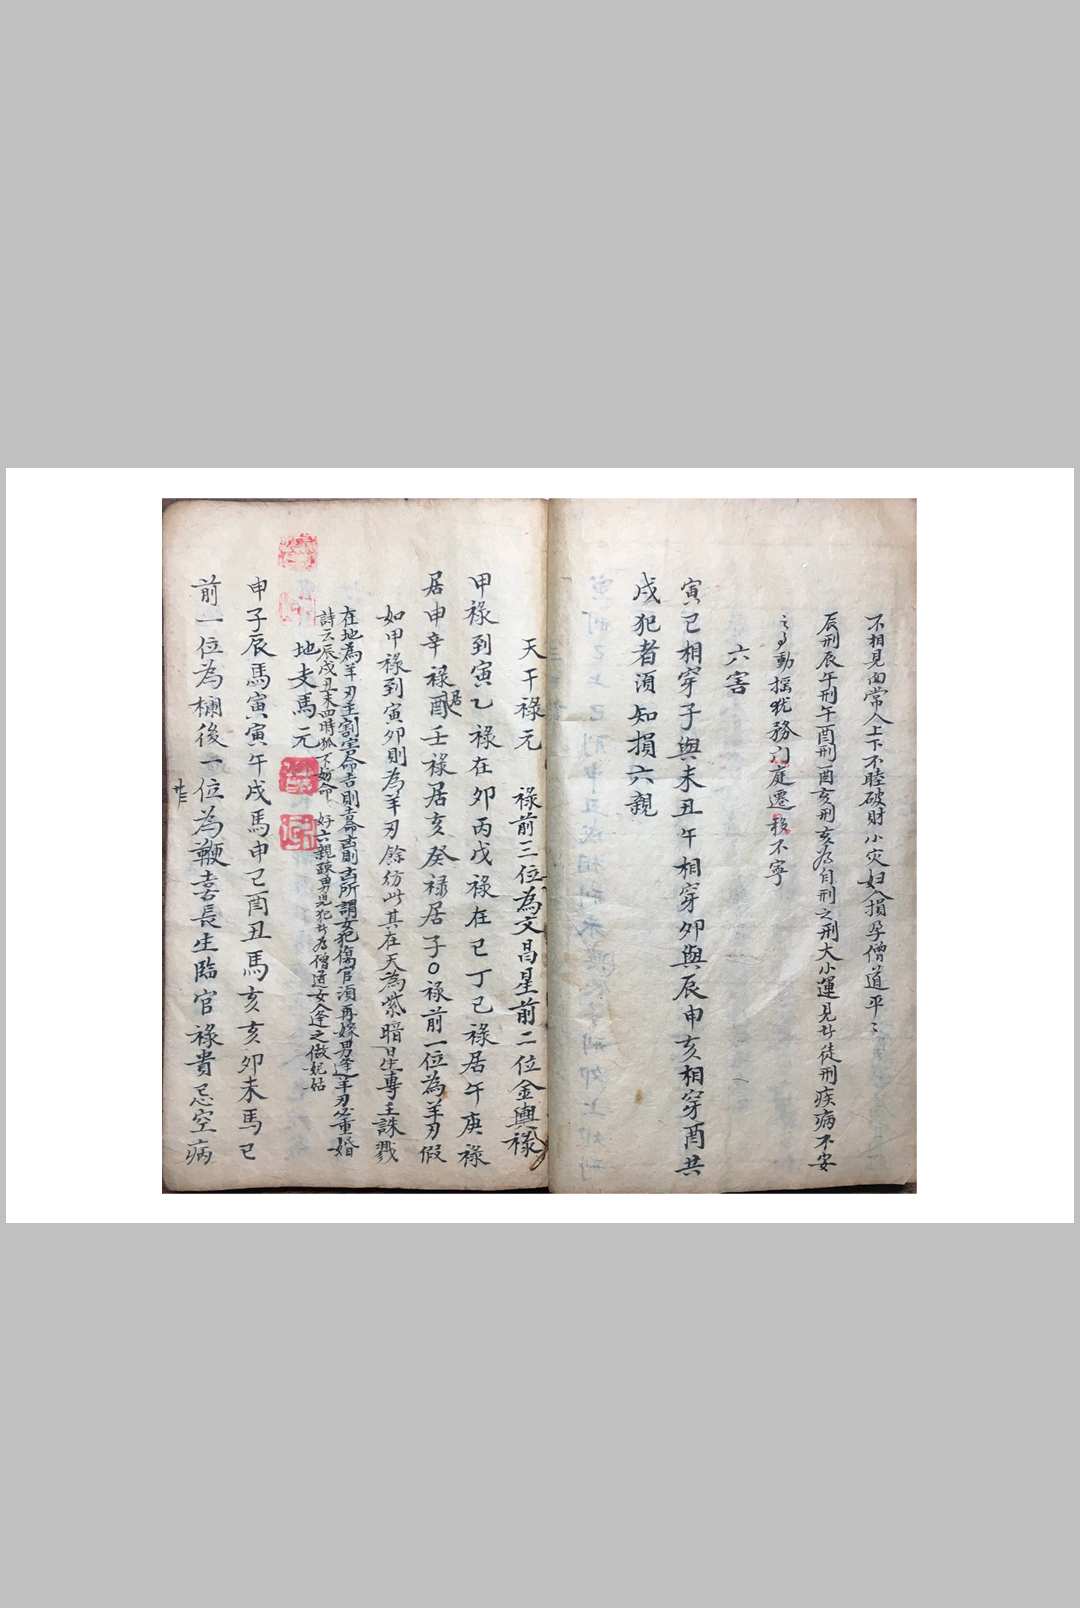 不相見面常人上下不睦破財小灾妇人損孕僧道平〻
辰刑辰午刑午酉刑酉亥刑亥為自刑之刑大小運見者徒刑疾病不安
動搖犹務门庭遷移不寧
六害
寅巳相穿子與未丑午相穿夘與辰申亥相穿酉共
戌犯者湏知損六親
天干禄元 禄前三位為文昌星前二位金輿禄
甲禄到寅乙禄在夘丙戊禄在巳丁己禄居午庚禄
居申辛禄居酉壬禄居亥癸禄居子○禄前一位為羊刃假
如甲禄到寅夘則為羊刃餘仿此其在天為紫暗星專主誅戮
在地為羊刃主割害命吉則吉命凶則凶所謂女犯傷官湏再嫁男逢羊刃必重婚
詩云辰戌丑未四時孤 命 好六親踈男兒犯者為僧道女人逢之做妃姑
地支馬元
申子辰馬寅寅午戌馬申巳酉丑馬亥亥夘未馬巳
前一位為欄後一位為鞭喜長生臨官禄貴忌空病